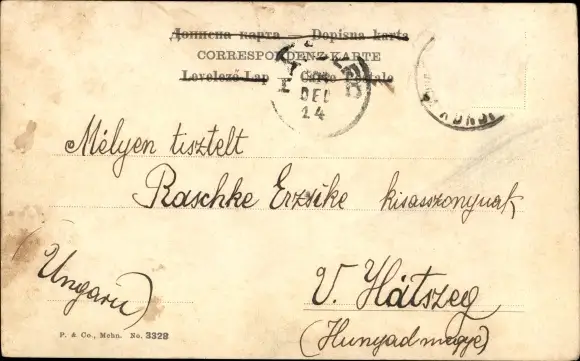 Дописна карта — Dopisna karta
CORRESPONDENZ-KARTE
Levelező-Lap Carte postale
DEC
24
Mélyen tisztelt
Raschke Erzsike kisasszonynak
(Ungarn)
V. Hátszeg
(Hunyadmegye)
P. & Co., Mchn. No. 3328